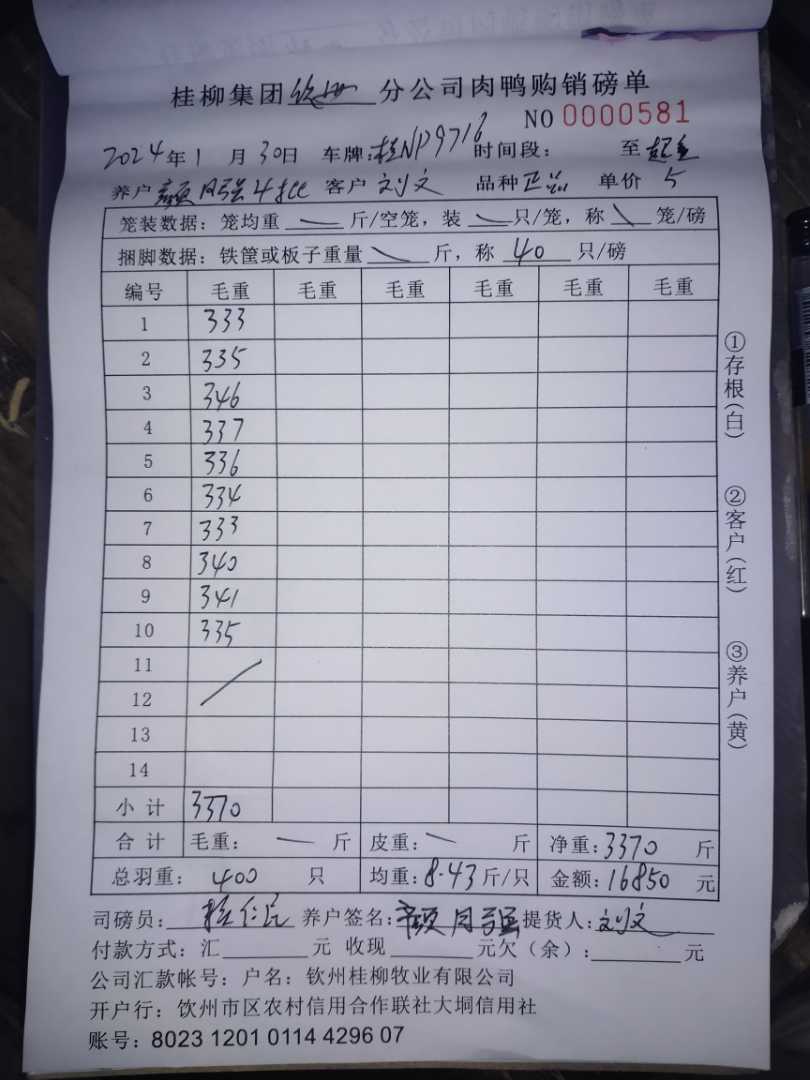 桂柳集团钦州分公司肉鸭购销磅单
NO 0000581
2024年1月30日 车牌:桂NP9716 时间段: 至
养户颜月强4批 客户刘文 品种正品 单价5
笼装数据:笼均重 — 斤/空笼,装 — 只/笼,称 \ 笼/磅
捆脚数据:铁筐或板子重量 \ 斤,称 40 只/磅
编号 毛重 毛重 毛重 毛重 毛重 毛重
1 333
2 335
3 346
4 337
5 336
6 334
7 333
8 340
9 341
10 335
11
12
13
14
小计 3370
合计 毛重: — 斤 皮重: — 斤 净重:3370 斤
总羽重: 400 只 均重:8.43斤/只 金额:16850 元
司磅员: 养户签名:颜月强 提货人:刘文
付款方式:汇 元 收现 元欠(余): 元
公司汇款帐号:户名:钦州桂柳牧业有限公司
开户行:饮州市区农村信用合作联社大垌信用社
账号:8023 1201 0114 4296 07
①存根(白)
②客户(红)
③养户(黄)